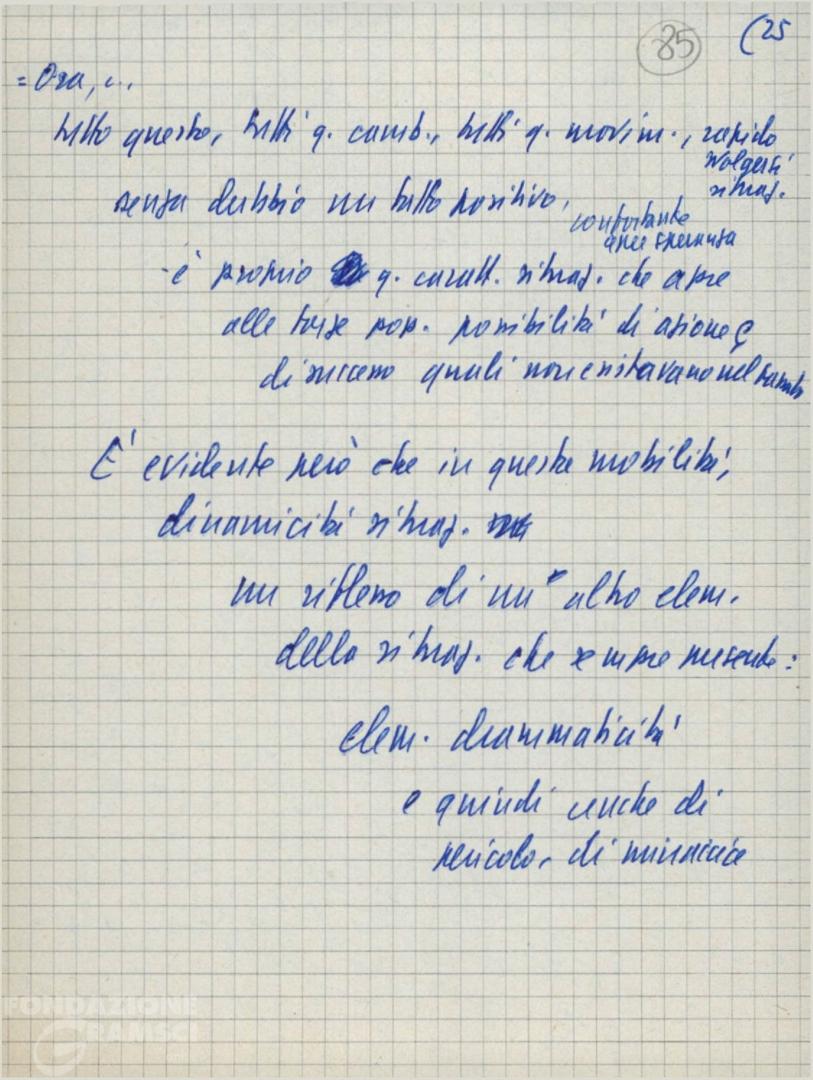 85
(25
= Ora, ...
tutto questo, tutti q. camb., tutti q. movim., rapido
svolgersi
situaz.
senza dubbio un fatto positivo,
confortante
apre speranza
- è proprio q. caratt. situaz. che apre
alle forze pop. possibilità di azione e
di successo quali non esistavano nel
E' evidente però che in questa mobilità,
dinamicità situaz.
un riflesso di un altro elem.
della situaz. che sempre presente:
elem. drammaticità
e quindi anche di
pericolo, di minaccia
FONDAZIONE
GRAMSCI